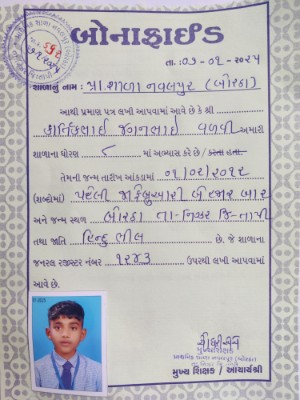 બોનાફાઈડ
તા.: ૦૭-૦૧-૨૦૨૫
શાળાનું નામ: પ્રા.શાળા નવલપુર (બોરઠા)
આથી પ્રમાણ પત્ર લખી આપવામાં આવે છે કે શ્રી
કાર્તિકભાઈ જગનભાઈ વળવી અમારી
શાળાના ધોરણ ૮ માં અભ્યાસ કરે છે / કરતા હતા
તેમની જન્મ તારીખ આંકડામાં ૦૧/૦૨/૨૦૧૨
(શબ્દોમાં) પહેલી ફેબ્રુઆરી બે હજાર બાર
અને જન્મ સ્થળ બોરઠા તા-નિઝર જિ-તાપી
તથા જાતિ હિન્દુ ભીલ છે. જે શાળાના
જનરલ રજીસ્ટર નંબર ૧૨૪૩ ઉપરથી લખી આપવામાં
આવે છે.
મુખ્ય શિક્ષક / આચાર્યશ્રી